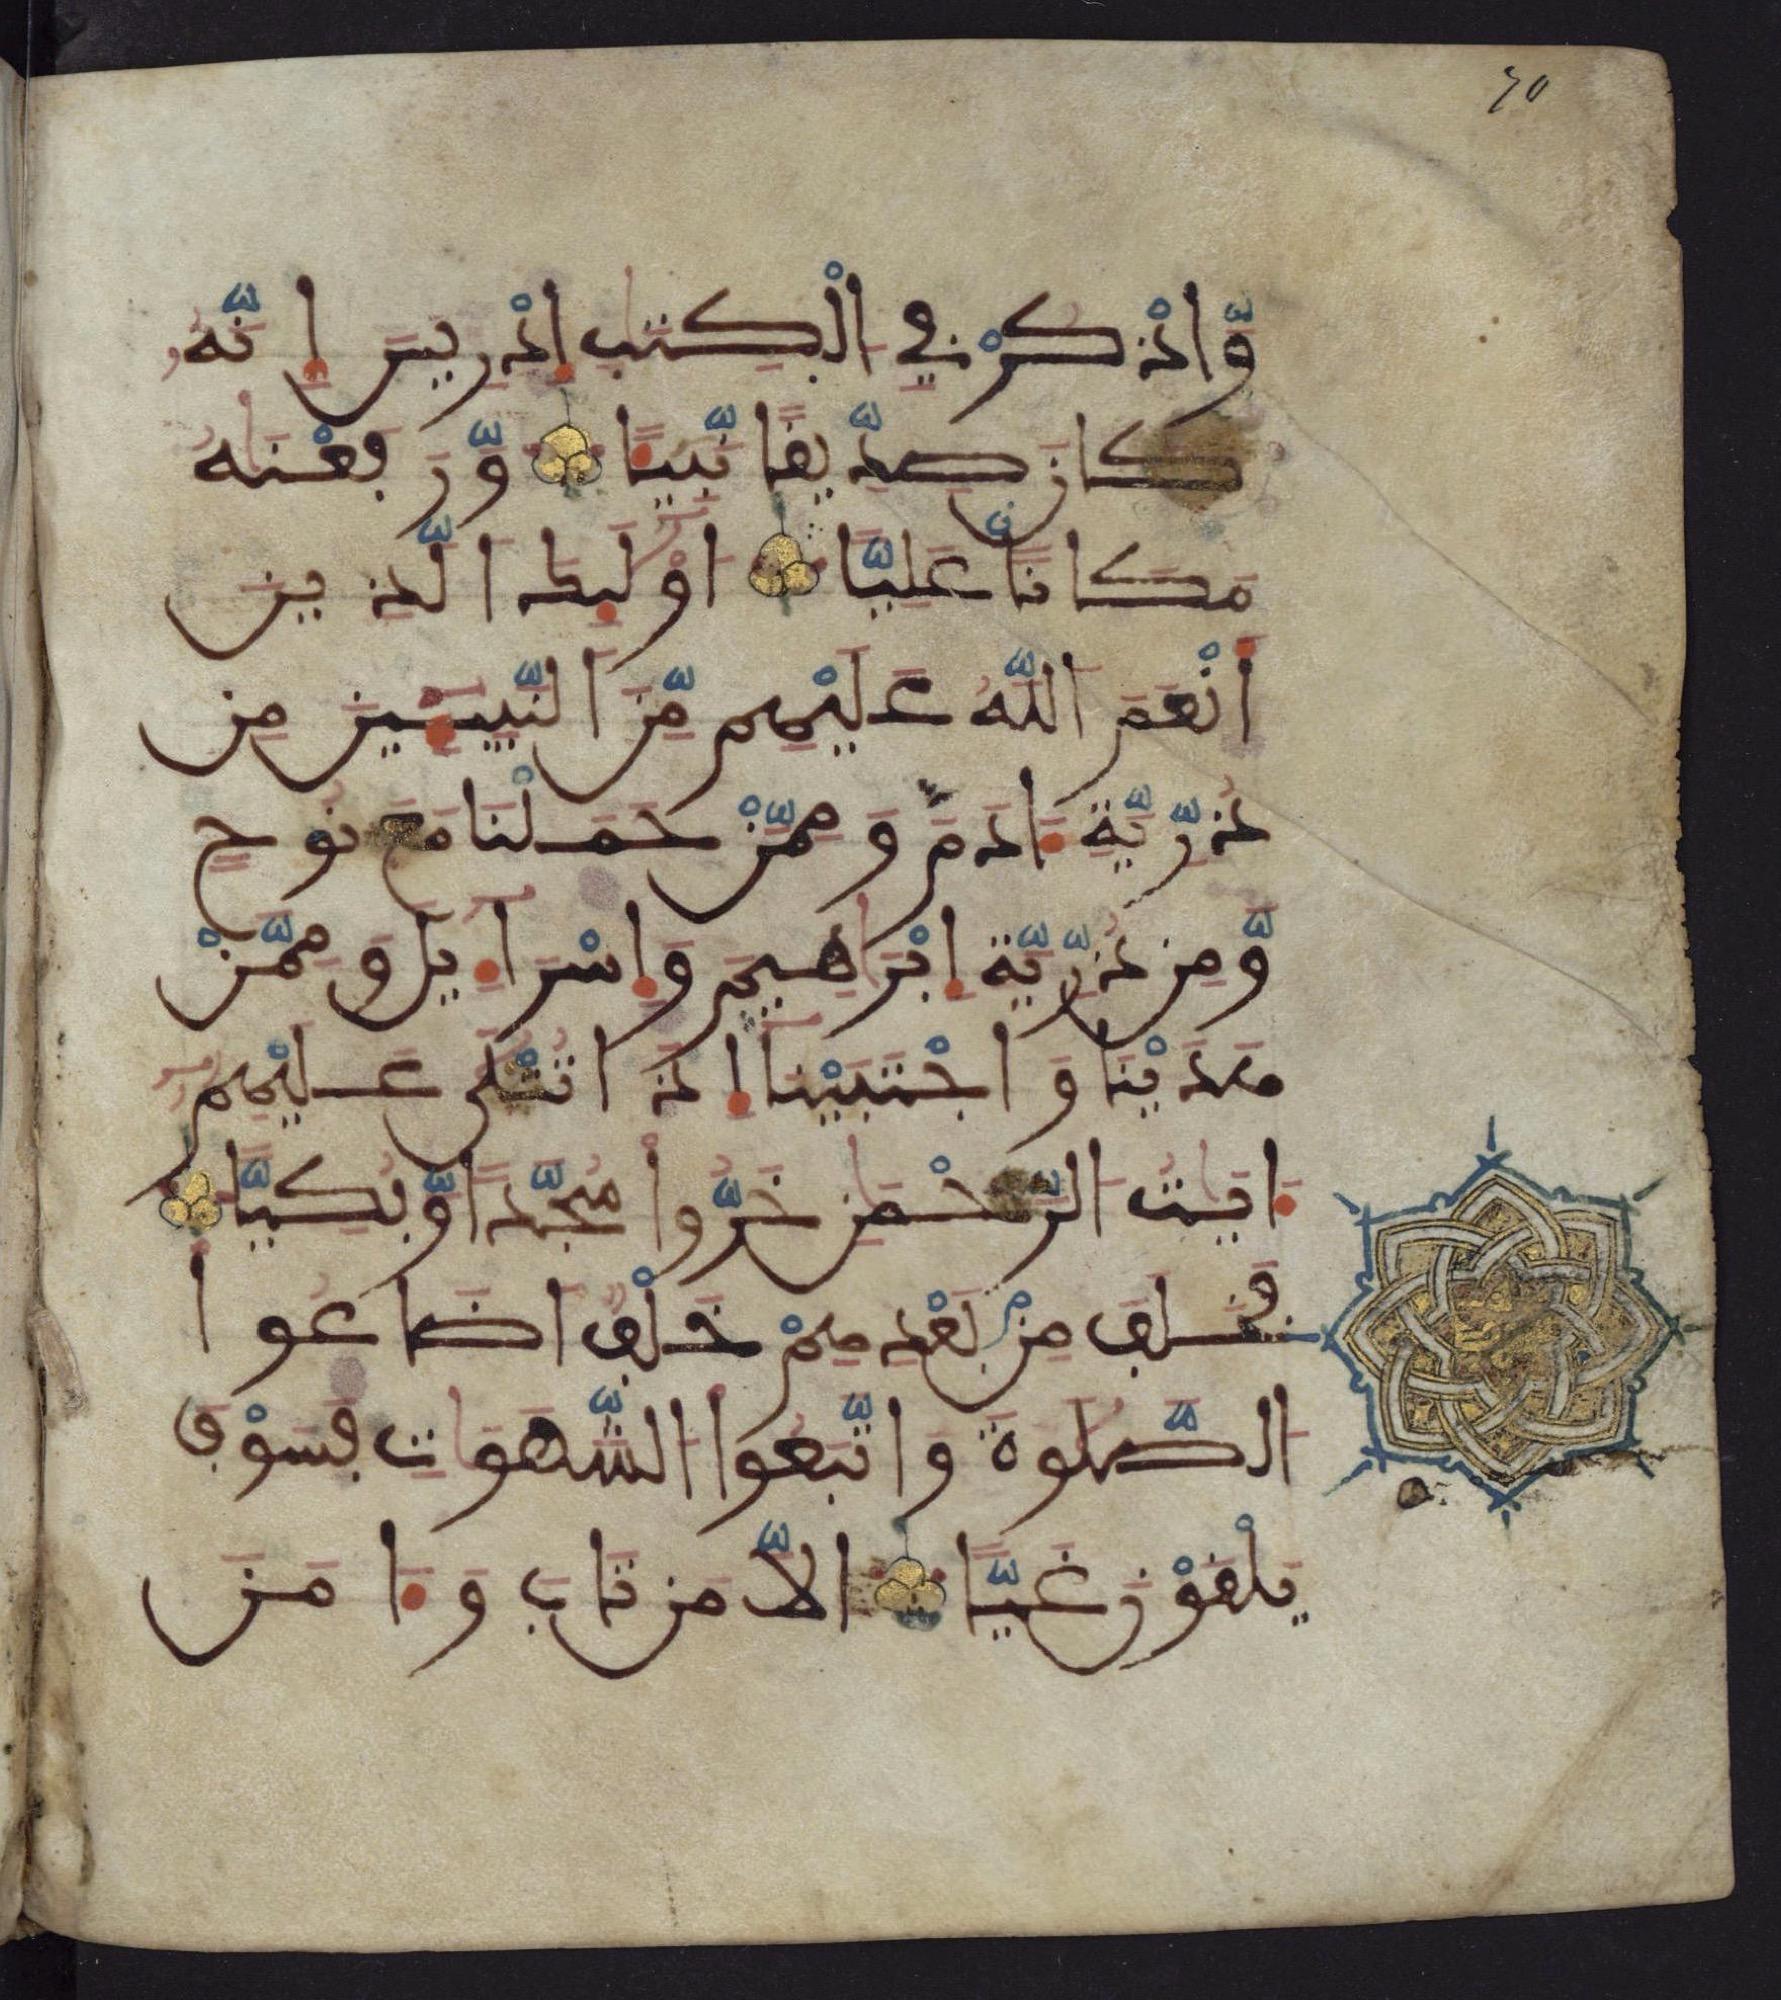 70
وَّاذْكُرْ فِي الْكِتَٰبِ إِدْرِيسَ إِنَّهُۥ
كَانَ صِدِّيقًا نَّبِيـًٔا وَّرَفَعْنَٰهُ
مَكَانًا عَلِيًّا اُوْلَٰٓئِكَ الَّذِينَ
أَنْعَمَ اللَّهُ عَلَيْهِم مِّنَ النَّبِيـِٕۧينَ مِن
ذُرِّيَّةِ ءَادَمَ وَمِمَّنْ حَمَلْنَا مَعَ نُوحٍ
وَّمِن ذُرِّيَّةِ إِبْرَٰهِيمَ وَإِسْرَآءِيلَ وَمِمَّنْ
هَدَيْنَا وَاجْتَبَيْنَآ إِذَا تُتْلَىٰ عَلَيْهِمُۥٓ
ءَايَٰتُ الرَّحْمَٰنِ خَرُّواْ سُجَّدًا وَّبُكِيًّا
فَخَلَفَ مِنۢ بَعْدِهِمْ خَلْفٌ اَضَاعُوا
الصَّلَوٰةَ وَاتَّبَعُوا الشَّهَوَٰتِ فَسَوْفَ
يَلْقَوْنَ غَيًّا اِلَّا مَن تَابَ وَءَامَنَ